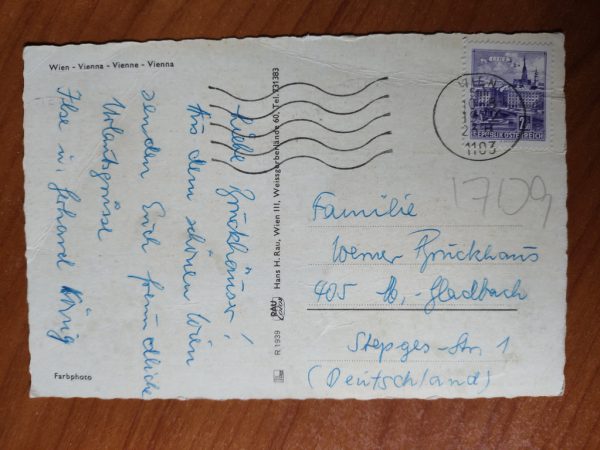 Wien - Vienna - Vienne - Vienna
Liebe Brückhäuser!
Aus dem schönen Wien
senden Euch freundliche
Urlaubsgrüsse
Ilse u. Gerhard König
Farbphoto
R 1939 RAU Color Hans H. Rau, Wien III, Weissgerberlände 60, Tel. 731383
LINZ
REPUBLIK ÖSTERREICH
WIEN
1103
1709
Familie
Werner Brückhaus
405 M.-Gladbach
Stepges-Str. 1
(Deutschland)